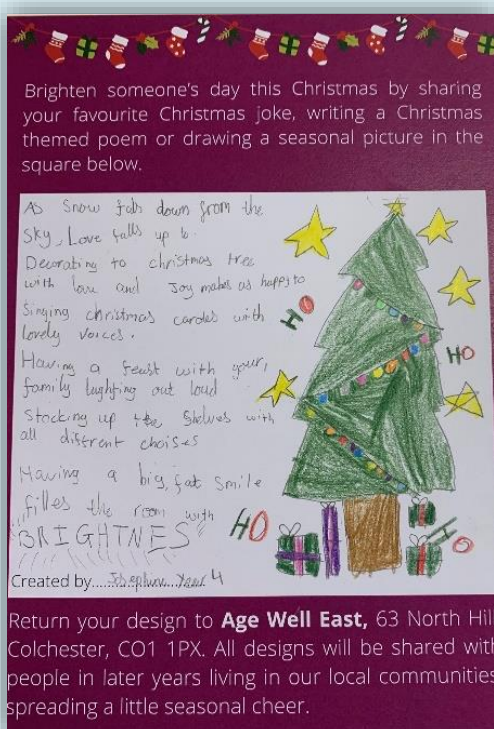 Brighten someone's day this Christmas by sharing
your favourite Christmas joke, writing a Christmas
themed poem or drawing a seasonal picture in the
square below.
As Snow falls down from the
Sky, Love falls up to.
Decorating to christmas tree
with love and Joy makes us happy to
Singing christmas caroles with
lovely voices.
Having a feast with your,
family lughting out loud
Stocking up the Shelves with
all diffrent choises
Having a big, fat Smile
filles the room with
BRIGHTNES
HO
HO
HO
HO
Created by......... Year 4
Return your design to Age Well East, 63 North Hill
Colchester, CO1 1PX. All designs will be shared with
people in later years living in our local communities
spreading a little seasonal cheer.